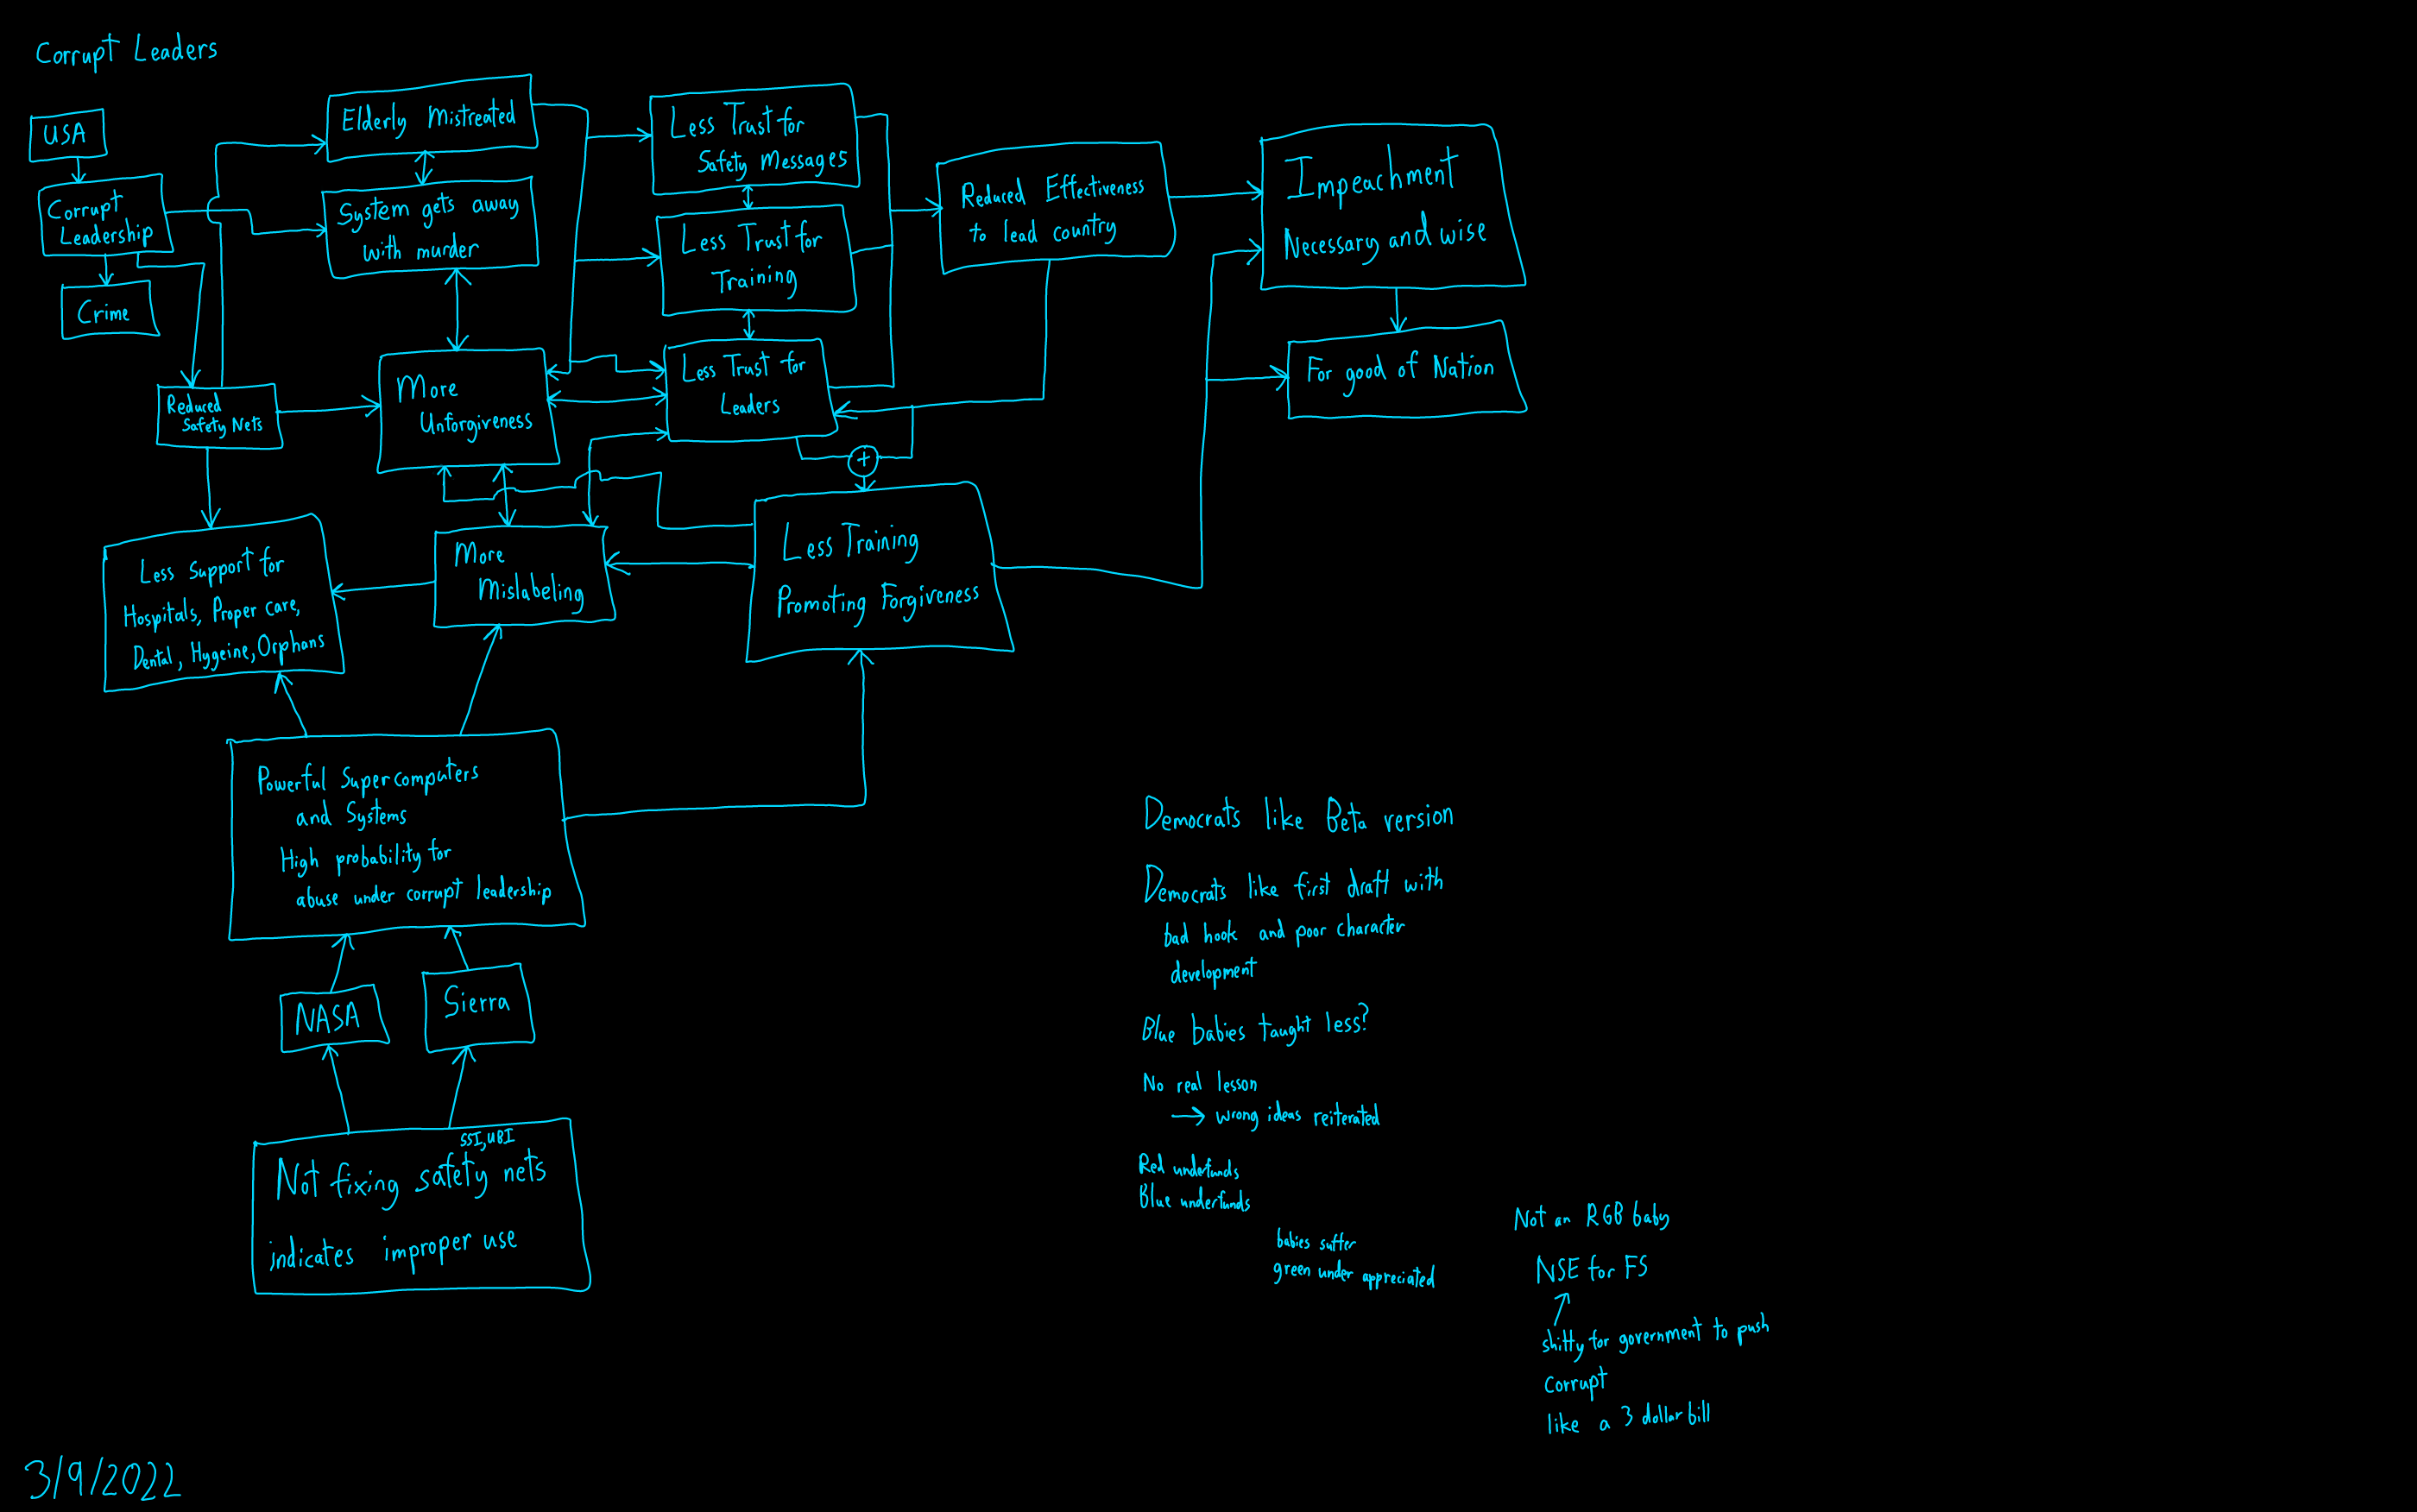 Corrupt Leaders
USA
Corrupt
Leadership
Crime
Elderly Mistreated
System gets away
with murder
Less Trust for
Safety Messages
Less Trust for
Training
Less Trust for
Leaders
Reduced Effectiveness
to lead country
Impeachment
Necessary and wise
For good of Nation
Reduced
Safety Nets
More
Unforgiveness
+
Less Support for
Hospitals, Proper care,
Dental, Hygeine, Orphans
More
Mislabeling
Less Training
Promoting Forgiveness
Powerful Supercomputers
and Systems
High probability for
abuse under corrupt leadership
NASA
Sierra
SSI, UBI
Not fixing safety nets
indicates improper use
Democrats like Beta version
Democrats like first draft with
bad hook and poor character
development
Blue babies taught less?
No real lesson
→ wrong ideas reiterated
Red underfunds
Blue underfunds
babies suffer
green under appreciated
Not an RGB baby
NSE for FS
shitty for government to push
corrupt
like a 3 dollar bill
3/9/2022